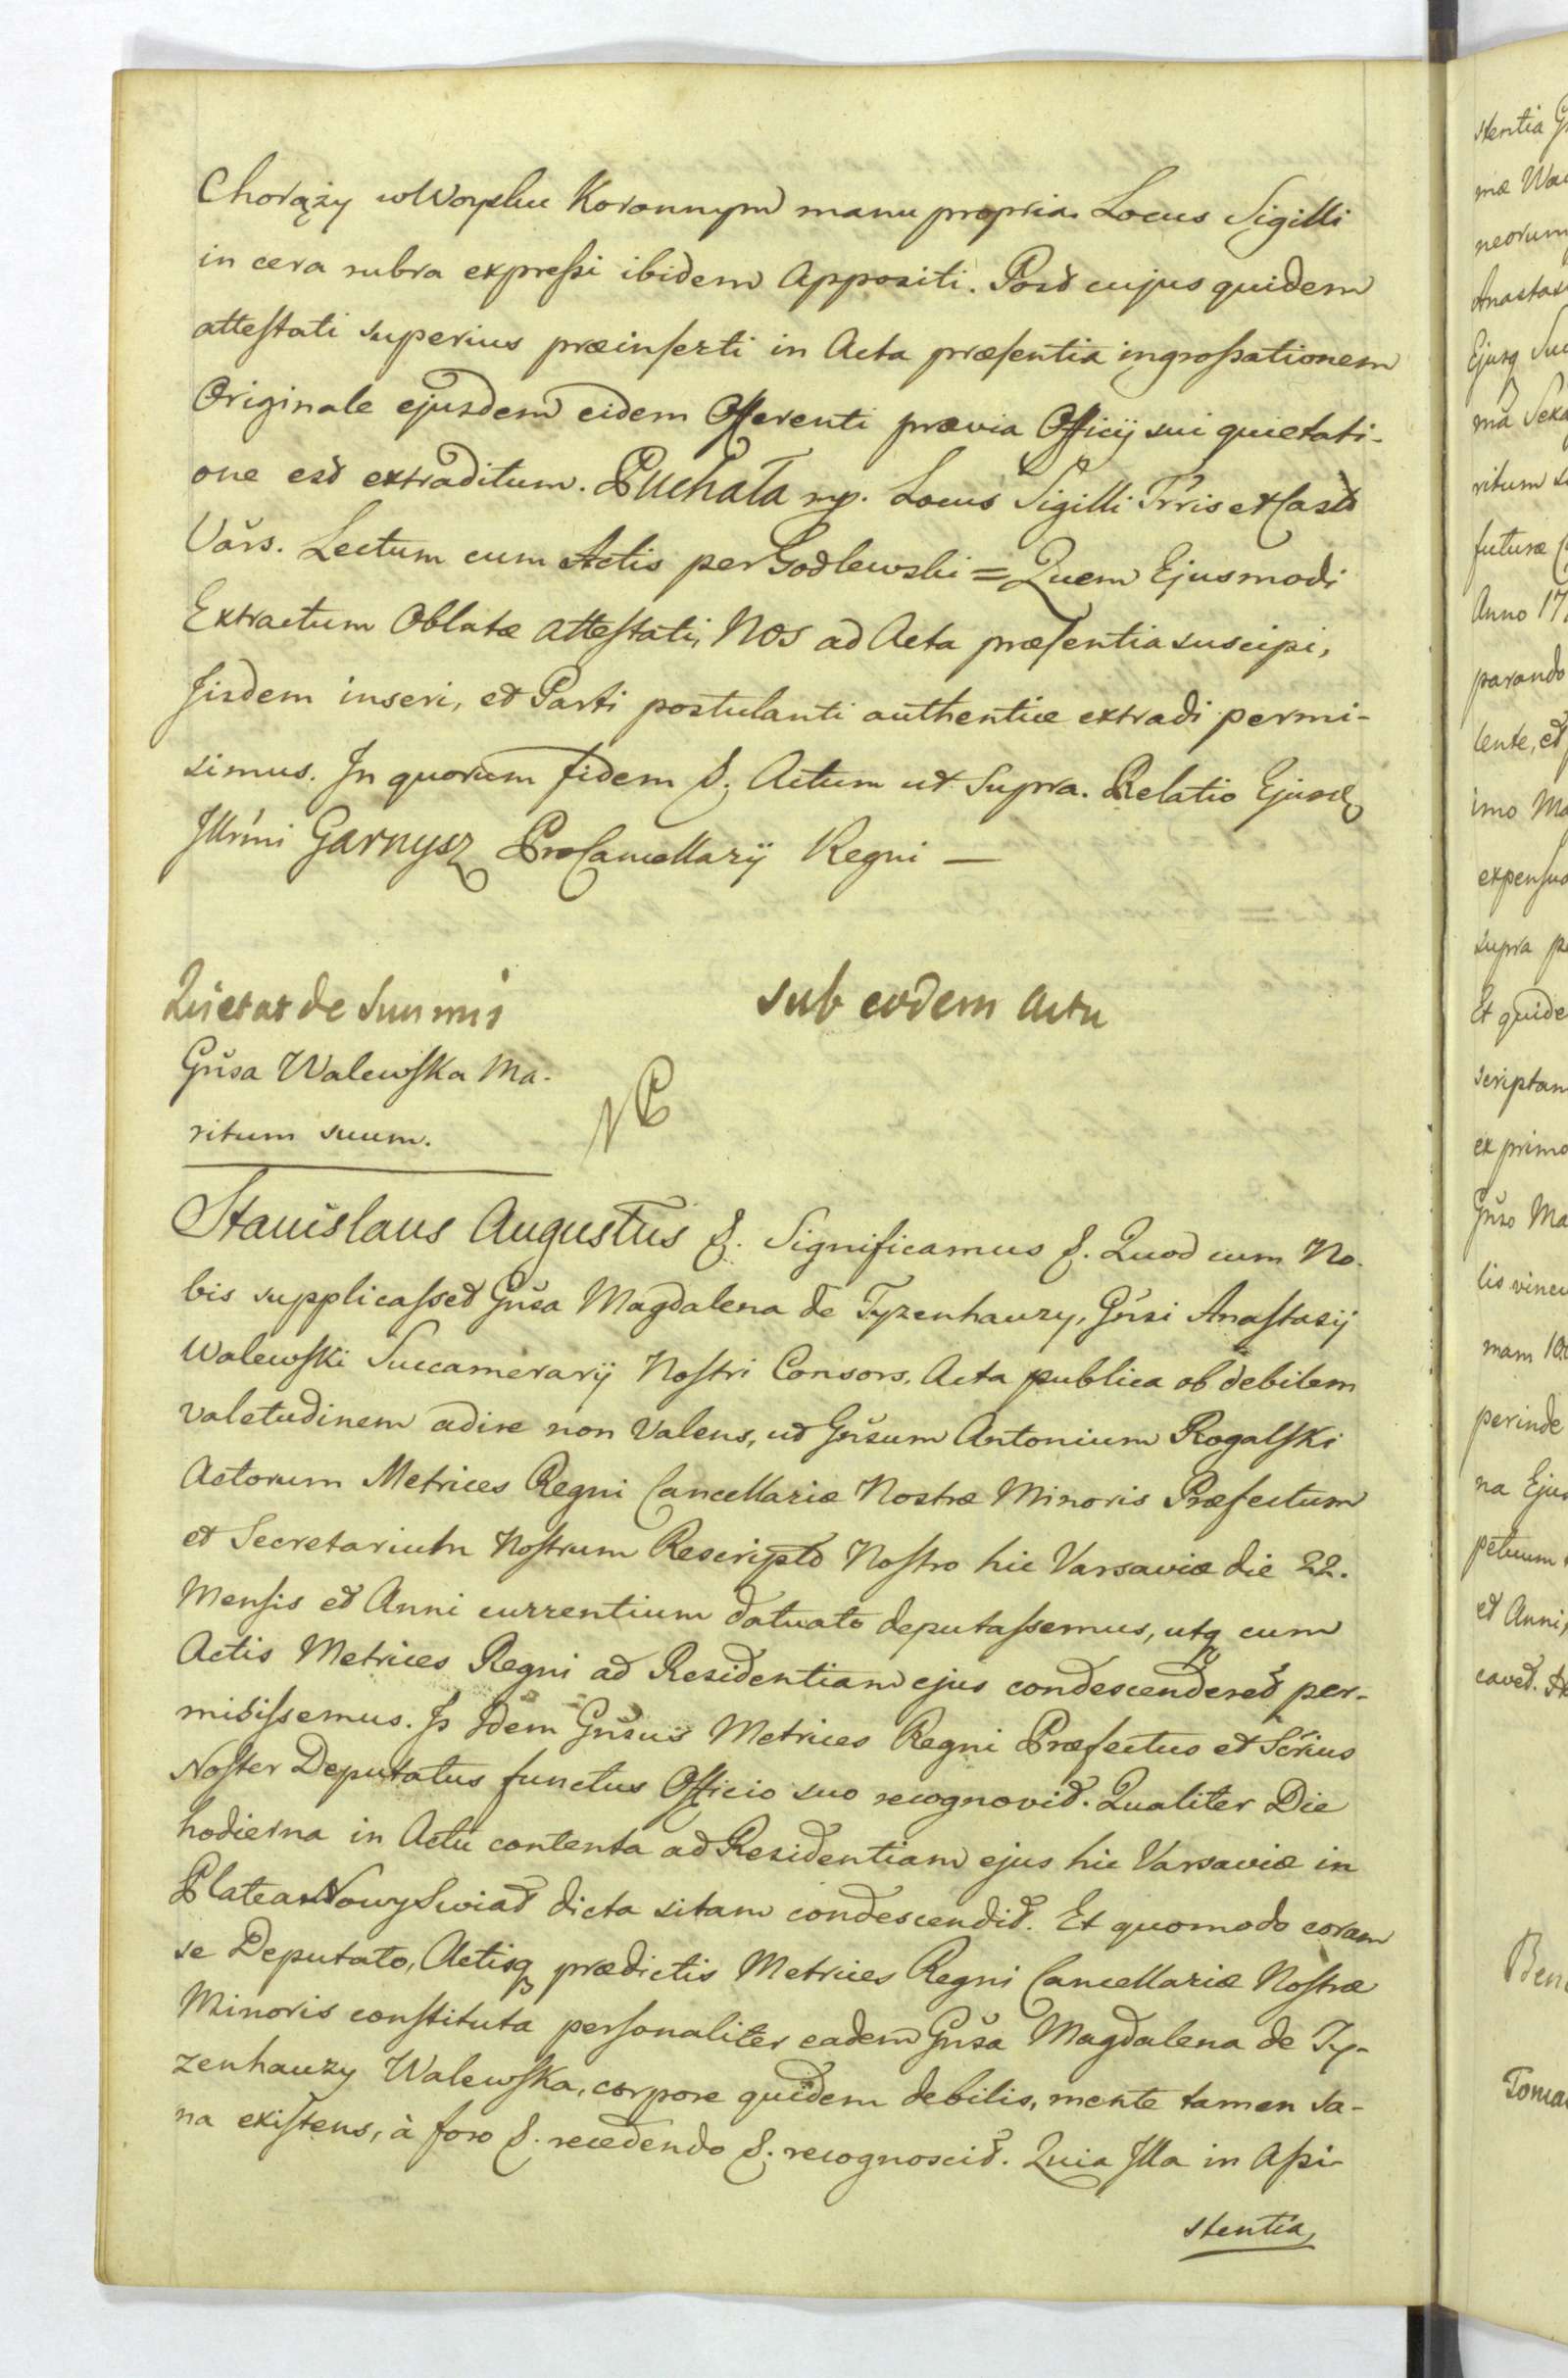 Chorąży w Woysku Koronnym manu propria. Locus Sigilli
in cera rubra expreſsi ibidem Appositi. Post cujus quidem
atteſtati superius præinſerti in Acta præſentia ingroſsationem
Originale ejusdem eidem Offerenti prævia Officij sui quietati-
one est extraditum. Puchała mp. Locus Sigilli Trris et Cast
Vars. Lectum cum Actis per Godlewski = Quem Ejusmodi
Extractum Oblatæ Atteſtati, Nos ad Acta præſentia suscipi,
Jisdem inseri, et Parti postulanti authentice extradi permi-
simus. In quorum fidem &. Actum ut Supra. Relatio Ejusd
Jllrmi Garnysz ProCancellarij Regni —
Quietat de Summis
sub eodem Actu
Gnsa Walewſka Ma-
ritum suum.
Stanislaus Augustus &. Significamus &. Quod cum No-
bis supplicaſset Gnsa Magdalena de Tyzenhauzy, Gnsi Anaſtasij
Walewſki Succamerarij Noſtri Consors, Acta publica ob debilem
valetudinem adire non valens, ut Gnsum Antonium Rogalſki
Actorum Metrices Regni Cancellariæ Nostræ Minoris Præfectum
et Secretarium Noſtrum Rescripto Noſtro hic Varsaviæ die 22.
Menſis et Anni currentium datuato deputaſsemus, utq cum
Actis Metrices Regni ad Residentiam ejus condescenderet per-
misiſsemus. Is Idem Gnsus Metrices Regni Præfectus et Scrius
Noſter Deputatus functus Officio suo recognovit. Qualiter Die
hodierna in Actu contenta ad Residentiam ejus hic Varsaviæ in
Platea Nowy Swiat dicta sitam condescendit. Et quomodo coram
se Deputato, Actisq prædictis Metrices Regni Cancellariæ Noſtræ
Minoris conſtituta perſonaliter eadem Gnsa Magdalena de Ty-
zenhauzy Walewſka, corpore quidem debilis, mente tamen sa-
na exiſtens, à foro &. recedendo &. recognoscit. Quia Jlla in Aſsi-
stentia